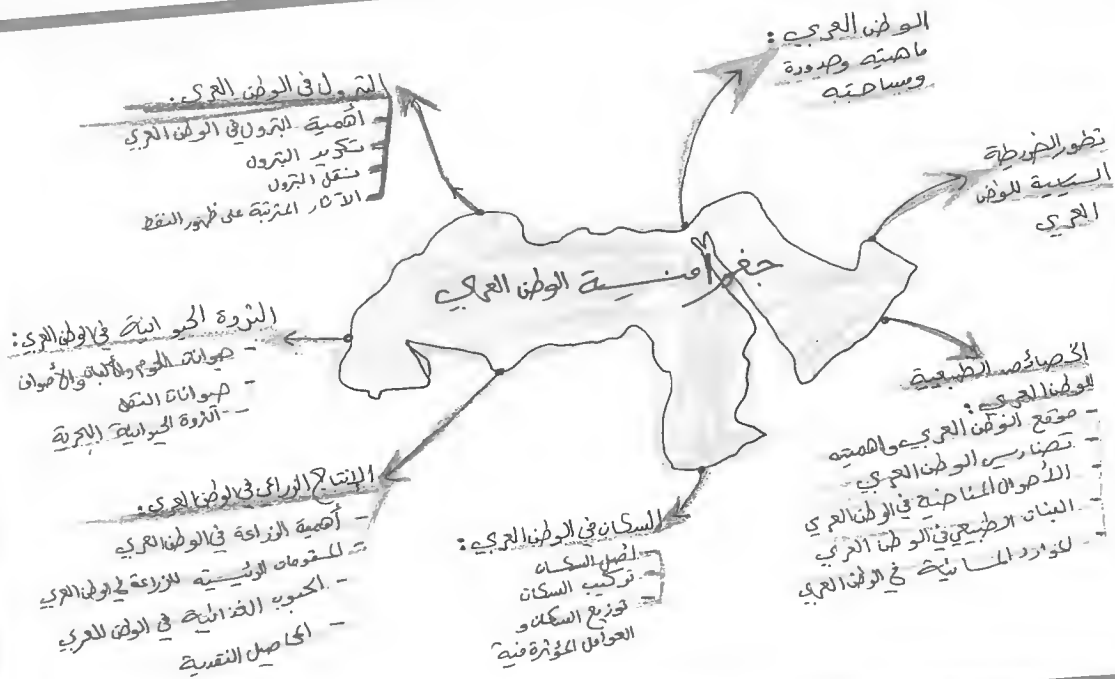 جغرافية الوطن العربي
الوطن العربي :
ماهيته وحدوده
ومساحته
تطور الخريطة
السياسية للوطن
العربي
الخصائص الطبيعية
للوطن العربي :
- موقع الوطن العربي واهميته
- تضاريس الوطن العربي
- الأحوال المناخية في الوطن العربي
- النبات الطبيعي في الوطن العربي
- الموارد المائية في الوطن العربي
السكان في الوطن العربي :
- أصل السكان
- تركيب السكان
- توزيع السكان و
العوامل المؤثرة فية
الإنتاج الزراعي في الوطن العربي :
- أهمية الزراعة في الوطن العربي
- المقومات الرئيسية للزراعة في الوطن العربي
- الحبوب الغذائية في الوطن العربي
- المحاصيل النقدية
الثروة الحيوانية في الوطن العربي :
- حيوانات اللحوم والألبان والأصواف
- حيوانات النقل
- الثروة الحيوانية البحرية
البترول في الوطن العربي :
- أهمية البترول في الوطن العربي
- تكرير البترول
- نقل البترول
- الآثار المترتبة على ظهور النفط